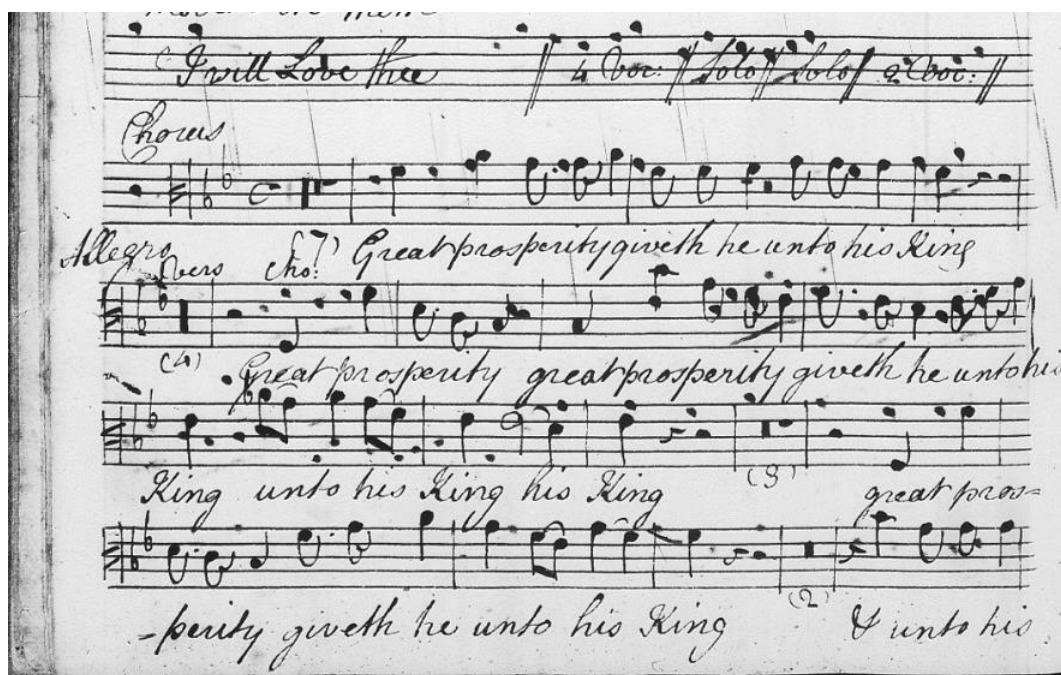 I will Love thee 4 Voc: Solo Solo 2 Voc:
Chorus
Allegro (7) Great prosperity giveth he unto his King
Vers Cho:
(4) Great prosperity great prosperity giveth he unto his
King unto his King his King (3) great pros=
-perity giveth he unto his King (2) & unto his